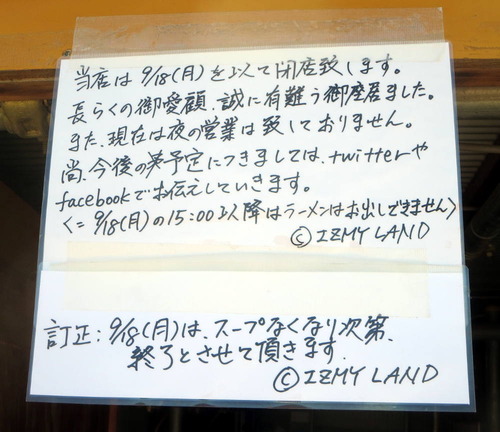 当店は9/18(月)を以て閉店致します。
長らくの御愛顧、誠に有難う御座居ました。
また、現在は夜の営業は致しておりません。
尚、今後の予定につきましては、twitterや
facebookでお伝えしていきます。
〈=9/18(月)の15:00以降はラーメンはお出しできません〉
©IZMY LAND
訂正:9/18(月)は、スープなくなり次第、
終了とさせて頂きます.
©IZMY LAND